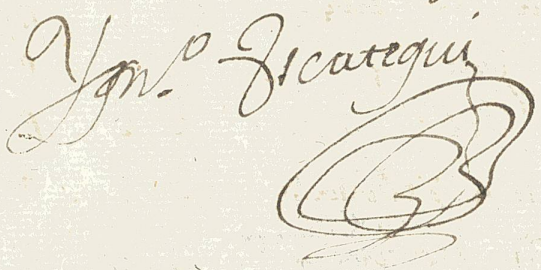 Ygn.º Yscategui